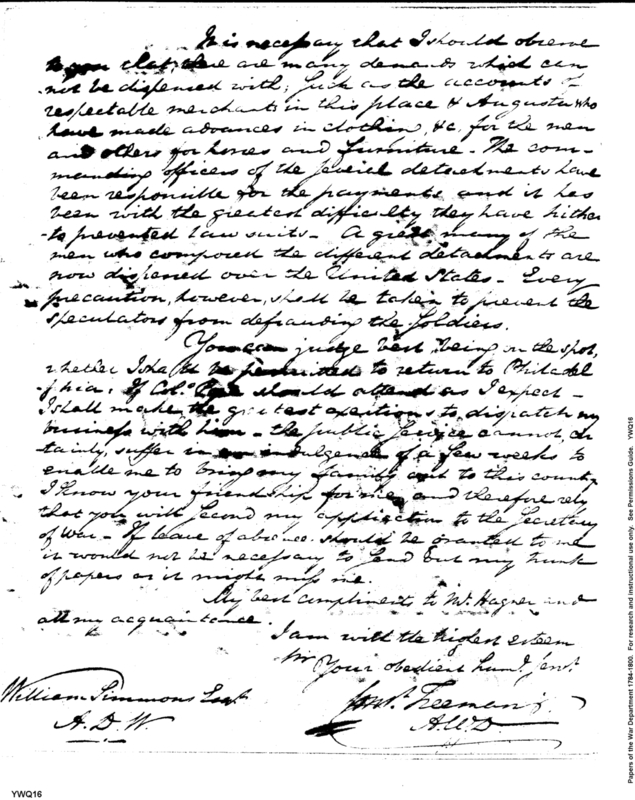 It is necessary that I should observe
to you that there are many demands which can
not be dispensed with; such as the accounts of
respectable merchants in this place & Augusta who
have made advances in clothing, &c. for the men
and others for horses and furniture - The com-
manding officers of the several detachments have
been responsible for the payments and it has
been with the greatest difficulty they have hither
-to prevented law suits - A great many of the
men who composed the different detachments are
now dispersed over the United States - Every
precaution, however, shall be taken to prevent the
speculators from defrauding the Soldiers.
You can judge best being on the spot,
whether I shall be permitted to return to Philadel
-phia; If Col.o should attend as I expect -
I shall make the greatest exertions to dispatch my
business with him - the public Service cannot, cer
tainly, suffer in an indulgence of a few weeks to
enable me to bring my family out to this country
I know your friendship for me, and therefore rely
that you will second my application to the Secretary
of War - If leave of absence should be granted to me
it would not be necessary to send out my trunk
of papers as it might miss me.
My best compliments to Mr. Wagner and
all my acquaintance.
I am with the highest esteem
Sir Your obedient hum.l Serv.t
William Simmons Esq.r
A.D.W.
Freeman
A.W.D.
YWQ16
Papers of the War Department 1784-1800. For research and instructional use only. See Permissions Guide. YWQ16